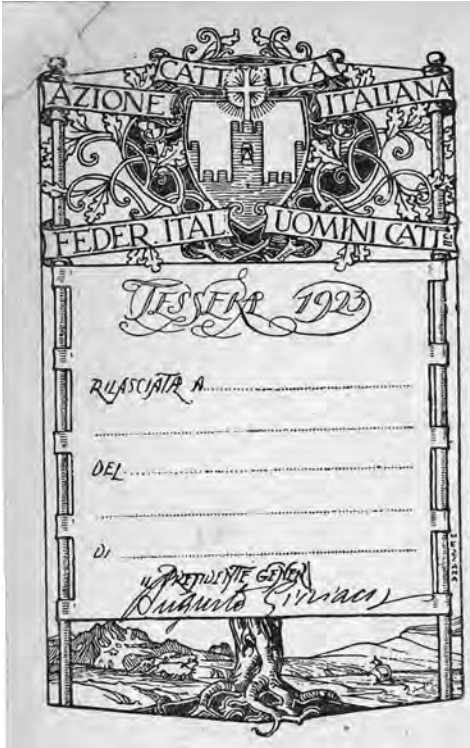 AZIONE CATTOLICA ITALIANA
FEDER. ITAL UOMINI CATT
TESSERA 1923
RILASCIATA A
DEL
DI
IL PRESIDENTE GENER
Augusto Ciriaci